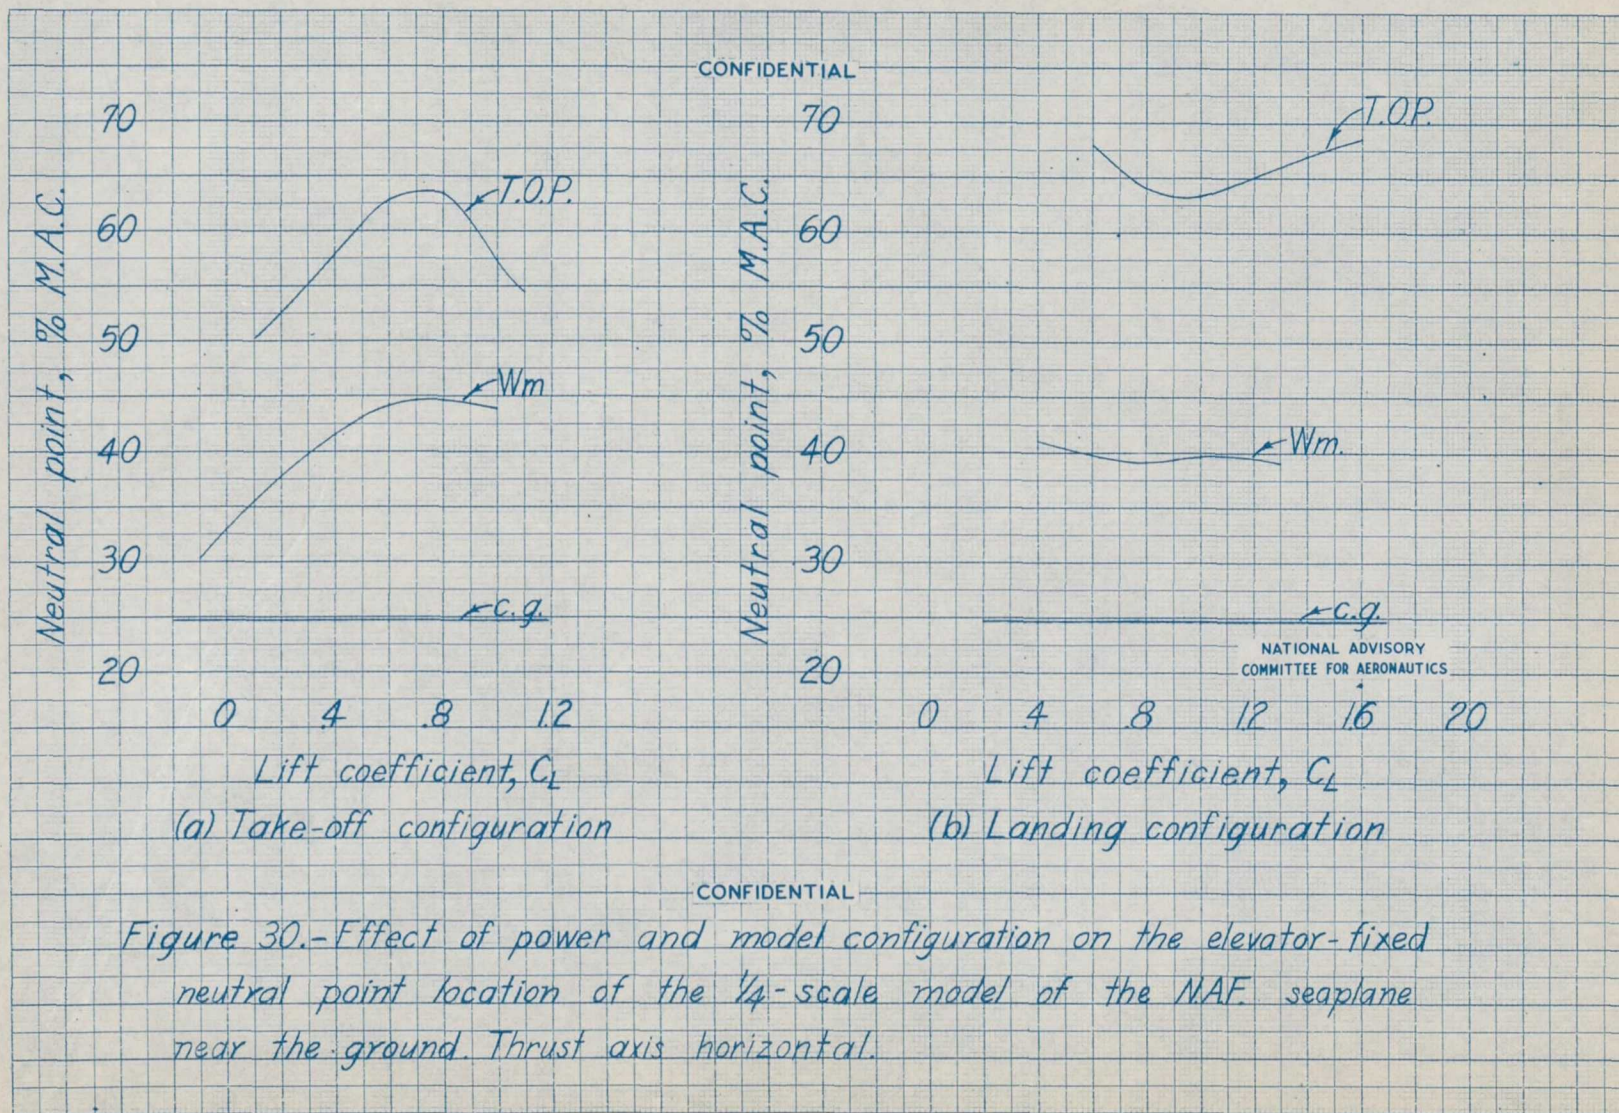 CONFIDENTIAL
70
60
50
40
30
20
Neutral point, % M.A.C.
T.O.P.
Wm
c.g.
0 .4 .8 1.2
Lift coefficient, CL
(a) Take-off configuration
70
60
50
40
30
20
Neutral point, % M.A.C.
T.O.P.
Wm.
c.g.
NATIONAL ADVISORY
COMMITTEE FOR AERONAUTICS
0 .4 .8 1.2 1.6 2.0
Lift coefficient, CL
(b) Landing configuration
CONFIDENTIAL
Figure 30.-Effect of power and model configuration on the elevator-fixed
neutral point location of the 1/4-scale model of the N.A.F. seaplane
near the ground. Thrust axis horizontal.